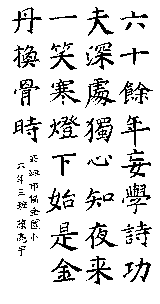 六十餘年妄學詩功
夫深處獨心知夜来
一笑寒燈下始是金
丹換骨時
市金國小
六年三班